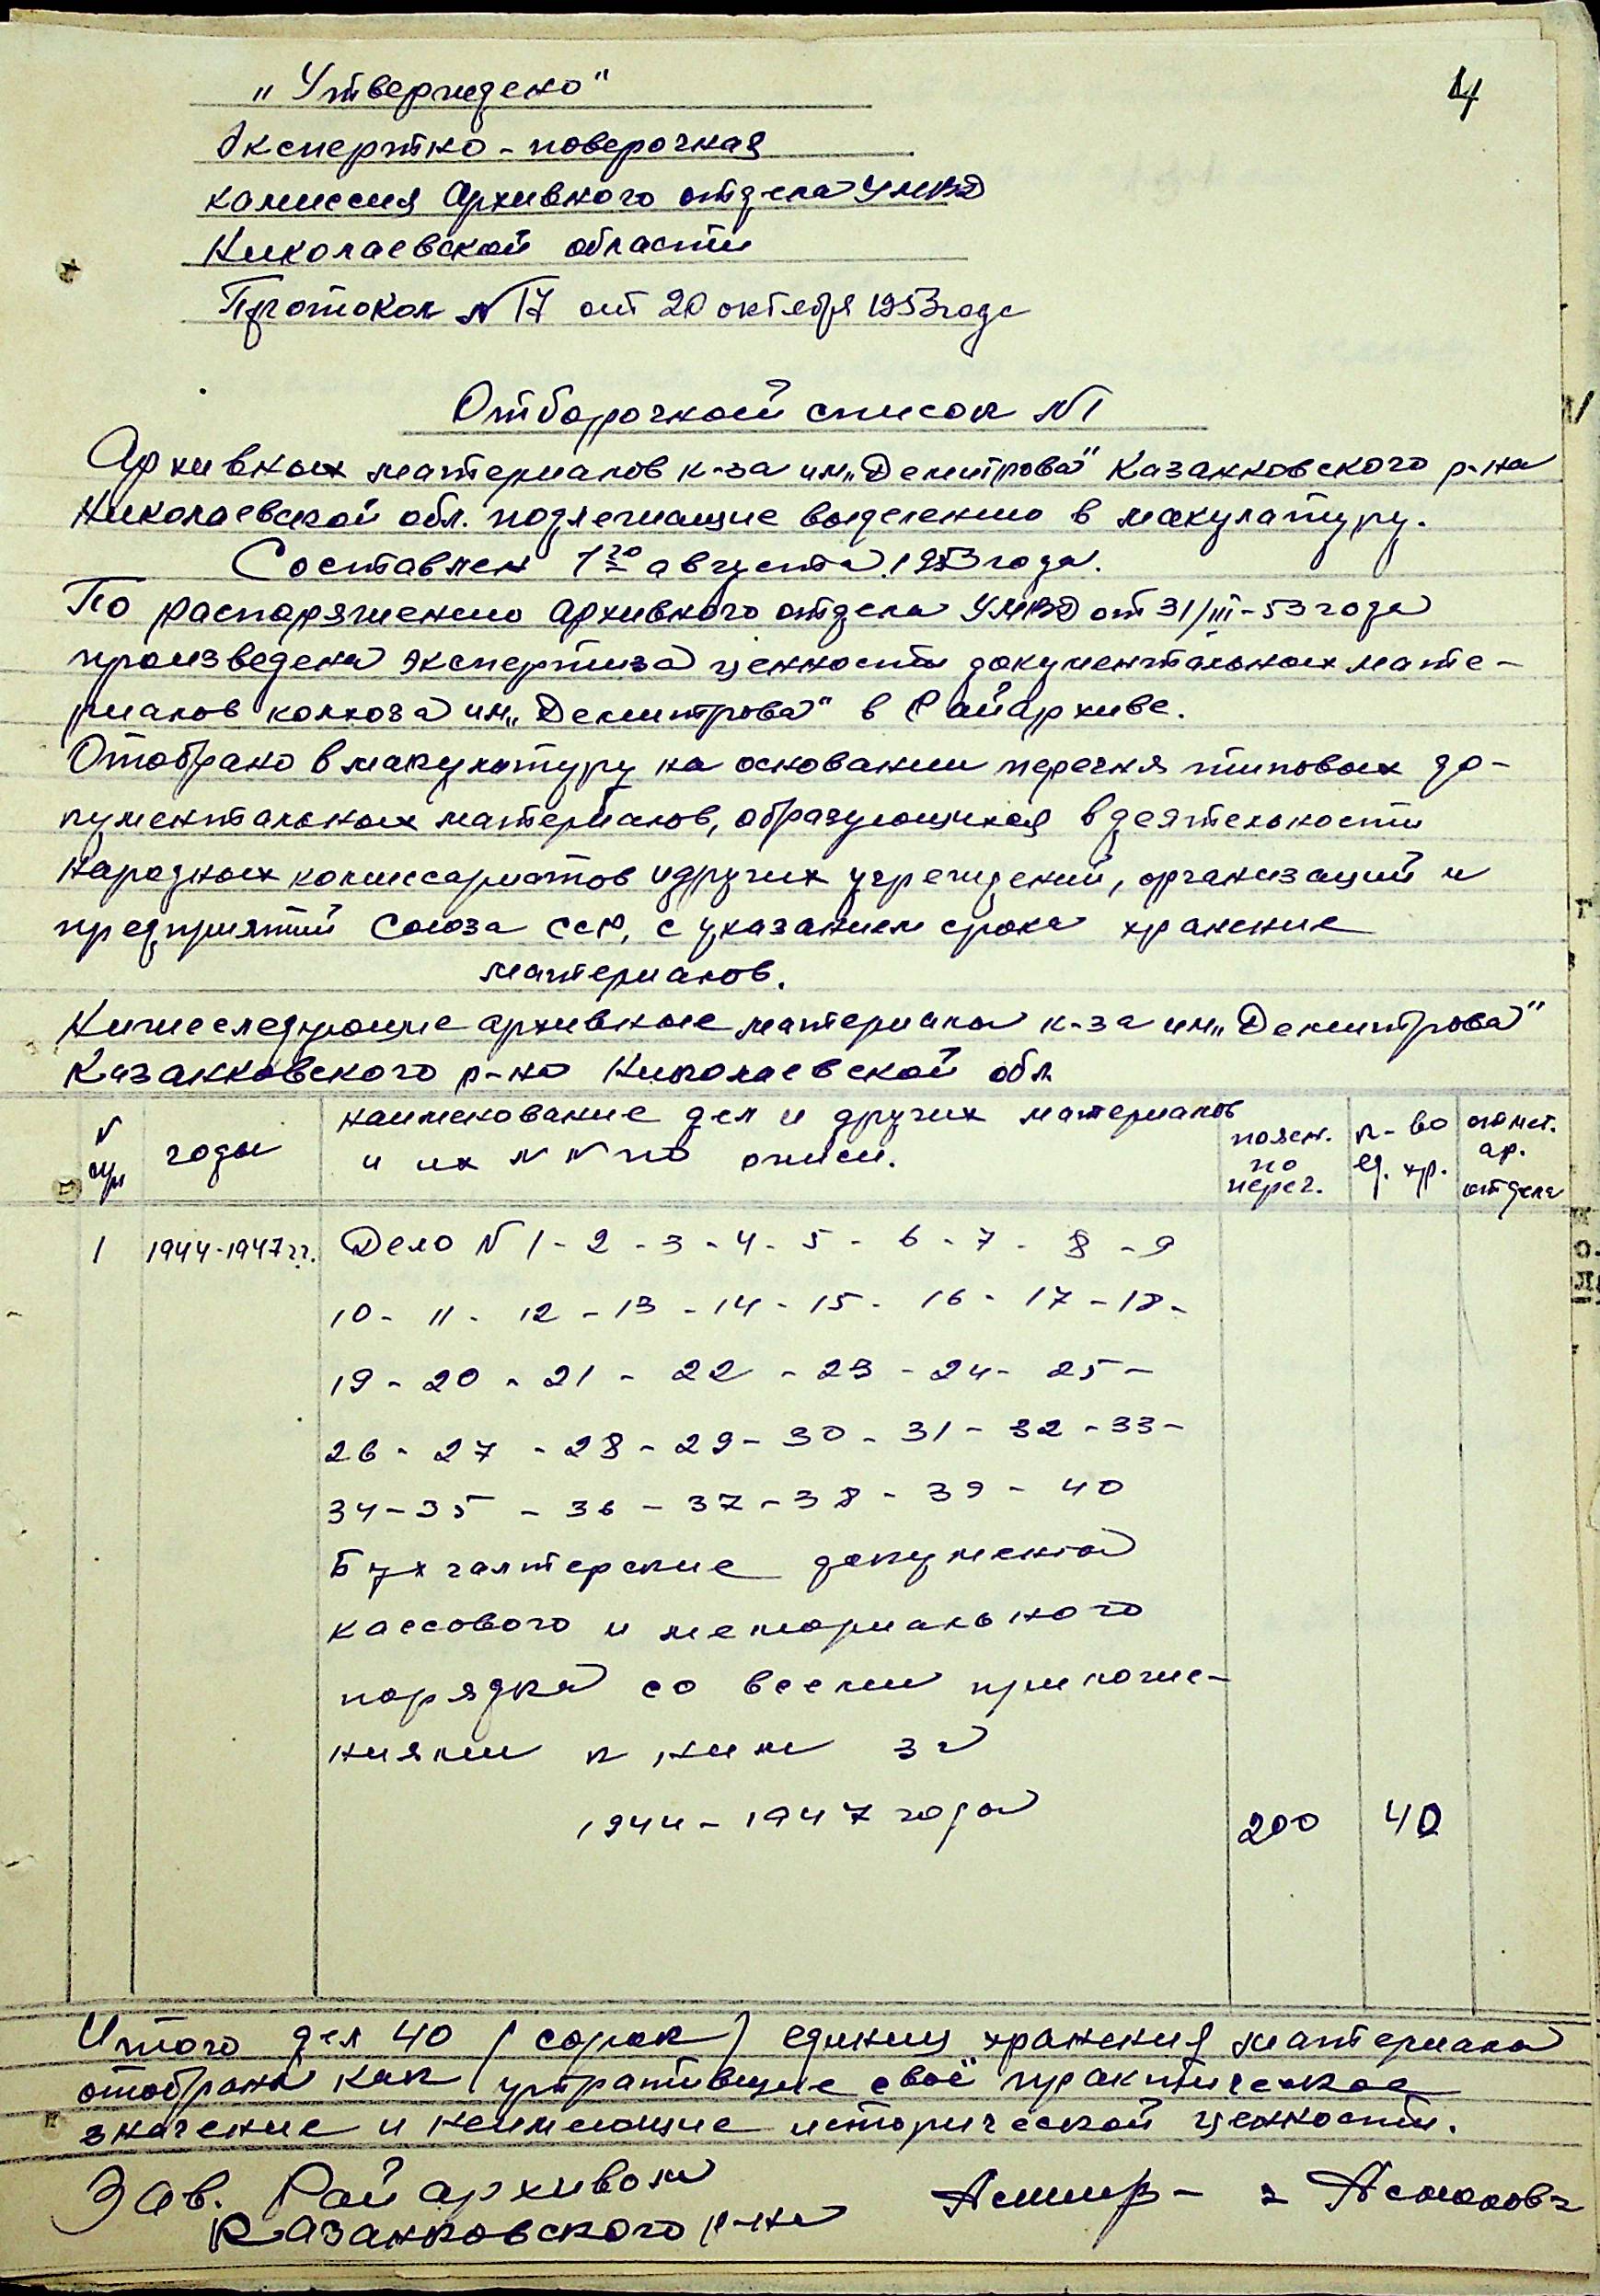 4
„Утверждено"
Экспертно-поверочная
комиссия Архивного отдела УМВД
Николаевской области
Протокол N 17 от 20 октября 1953 года
Отборочный список N 1
Архивных материалов к-за им „Демитрова" Казанковского р-на
Николаевской обл. подлежащие выделению в макулатуру.
Составлен 1го августа 1953 года.
По распоряжению архивного отдела УМВД от 31/III-53 года
произведена экспертиза ценности документальных мате-
риалов колхоза им „Демитрова" в Райархиве.
Отобрано в макулатуру на основании перечня типовых до-
кументальных материалов, образующихся в деятельности
народных комиссариатов и других учреждений, организаций и
предприятий Союза ССР, с указанием срока хранение
материалов.
Нижеследующие архивные материалы к-за им „Демитрова"
Казанковского р-на Николаевской обл
N годы наименование дел и других материалов к-во отмет.
и их N N по описи. по ед. хр. ар.
переч. отдела
1 1944-1947 гг. Дело N 1 - 2 - 3 - 4 - 5 - 6 - 7 - 8 - 9
10 - 11 - 12 - 13 - 14 - 15 - 16 - 17 - 18 -
19 - 20 - 21 - 22 - 23 - 24 - 25 -
26 - 27 - 28 - 29 - 30 - 31 - 32 - 33 -
34 - 35 - 36 - 37 - 38 - 39 - 40
Бухгалтерские документы
кассового и мемориального
порядка со всеми приложе-
ниями к ним за
1944 - 1947 годы 200 40
Итого дел 40 (сорок) единиц хранения материала
отобраны как утратившие своё практическое
значение и неимеющие исторической ценности.
Зав. Райархивом
Казанковского р-на